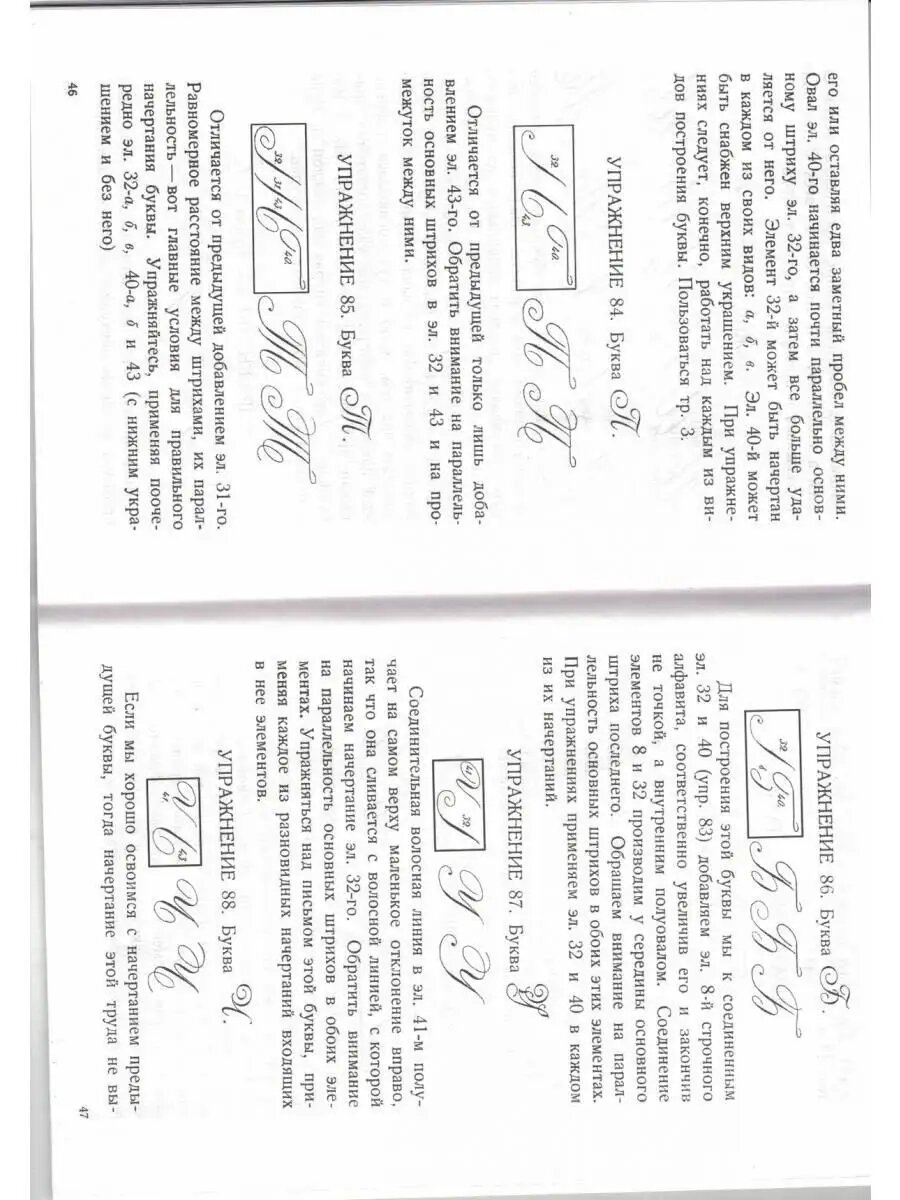 его или оставляя едва заметный пробел между ними.
Овал эл. 40-го начинается почти параллельно основ-
ному штриху эл. 32-го, а затем все больше уда-
ляется от него. Элемент 32-й может быть начертан
в каждом из своих видов: а, б, в. Эл. 40-й может
быть снабжен верхним украшением. При упражне-
ниях следует, конечно, работать над каждым из ви-
дов построения буквы. Пользоваться тр. 3.
УПРАЖНЕНИЕ 84. Буква П.
32 40а 43 П П
Отличается от предыдущей только лишь доба-
влением эл. 43-го. Обратить внимание на параллель-
ность основных штрихов в эл. 32 и 43 и на про-
межуток между ними.
УПРАЖНЕНИЕ 85. Буква Т.
32 31 43 40а Т Т
Отличается от предыдущей добавлением эл. 31-го.
Равномерное расстояние между штрихами, их парал-
лельность — вот главные условия для правильного
начертания буквы. Упражняйтесь, применяя пооче-
редно эл. 32-а, б, в, 40-а, б и 43 (с нижним укра-
шением и без него)
46
УПРАЖНЕНИЕ 86. Буква Б.
32 40а 8 Б Б Б
Для построения этой буквы мы к соединенным
эл. 32 и 40 (упр. 83) добавляем эл. 8-й строчного
алфавита, соответственно увеличив его и закончив
не точкой, а внутренним полуовалом. Соединение
элементов 8 и 32 производим у середины основного
штриха последнего. Обращаем внимание на парал-
лельность основных штрихов в обоих этих элементах.
При упражнениях применяем эл. 32 и 40 в каждом
из их начертаний.
УПРАЖНЕНИЕ 87. Буква У
41 32 У У
Соединительная волосная линия в эл. 41-м полу-
чает на самом верху маленькое отклонение вправо,
так что она сливается с волосной линией, с которой
начинаем начертание эл. 32-го. Обратить внимание
на параллельность основных штрихов в обоих эле-
ментах. Упражняться над письмом этой буквы, при-
меняя каждое из разновидных начертаний входящих
в нее элементов.
УПРАЖНЕНИЕ 88. Буква И.
41 43 И И
Если мы хорошо освоимся с начертанием преды-
дущей буквы, тогда начертание этой труда не вы-
47